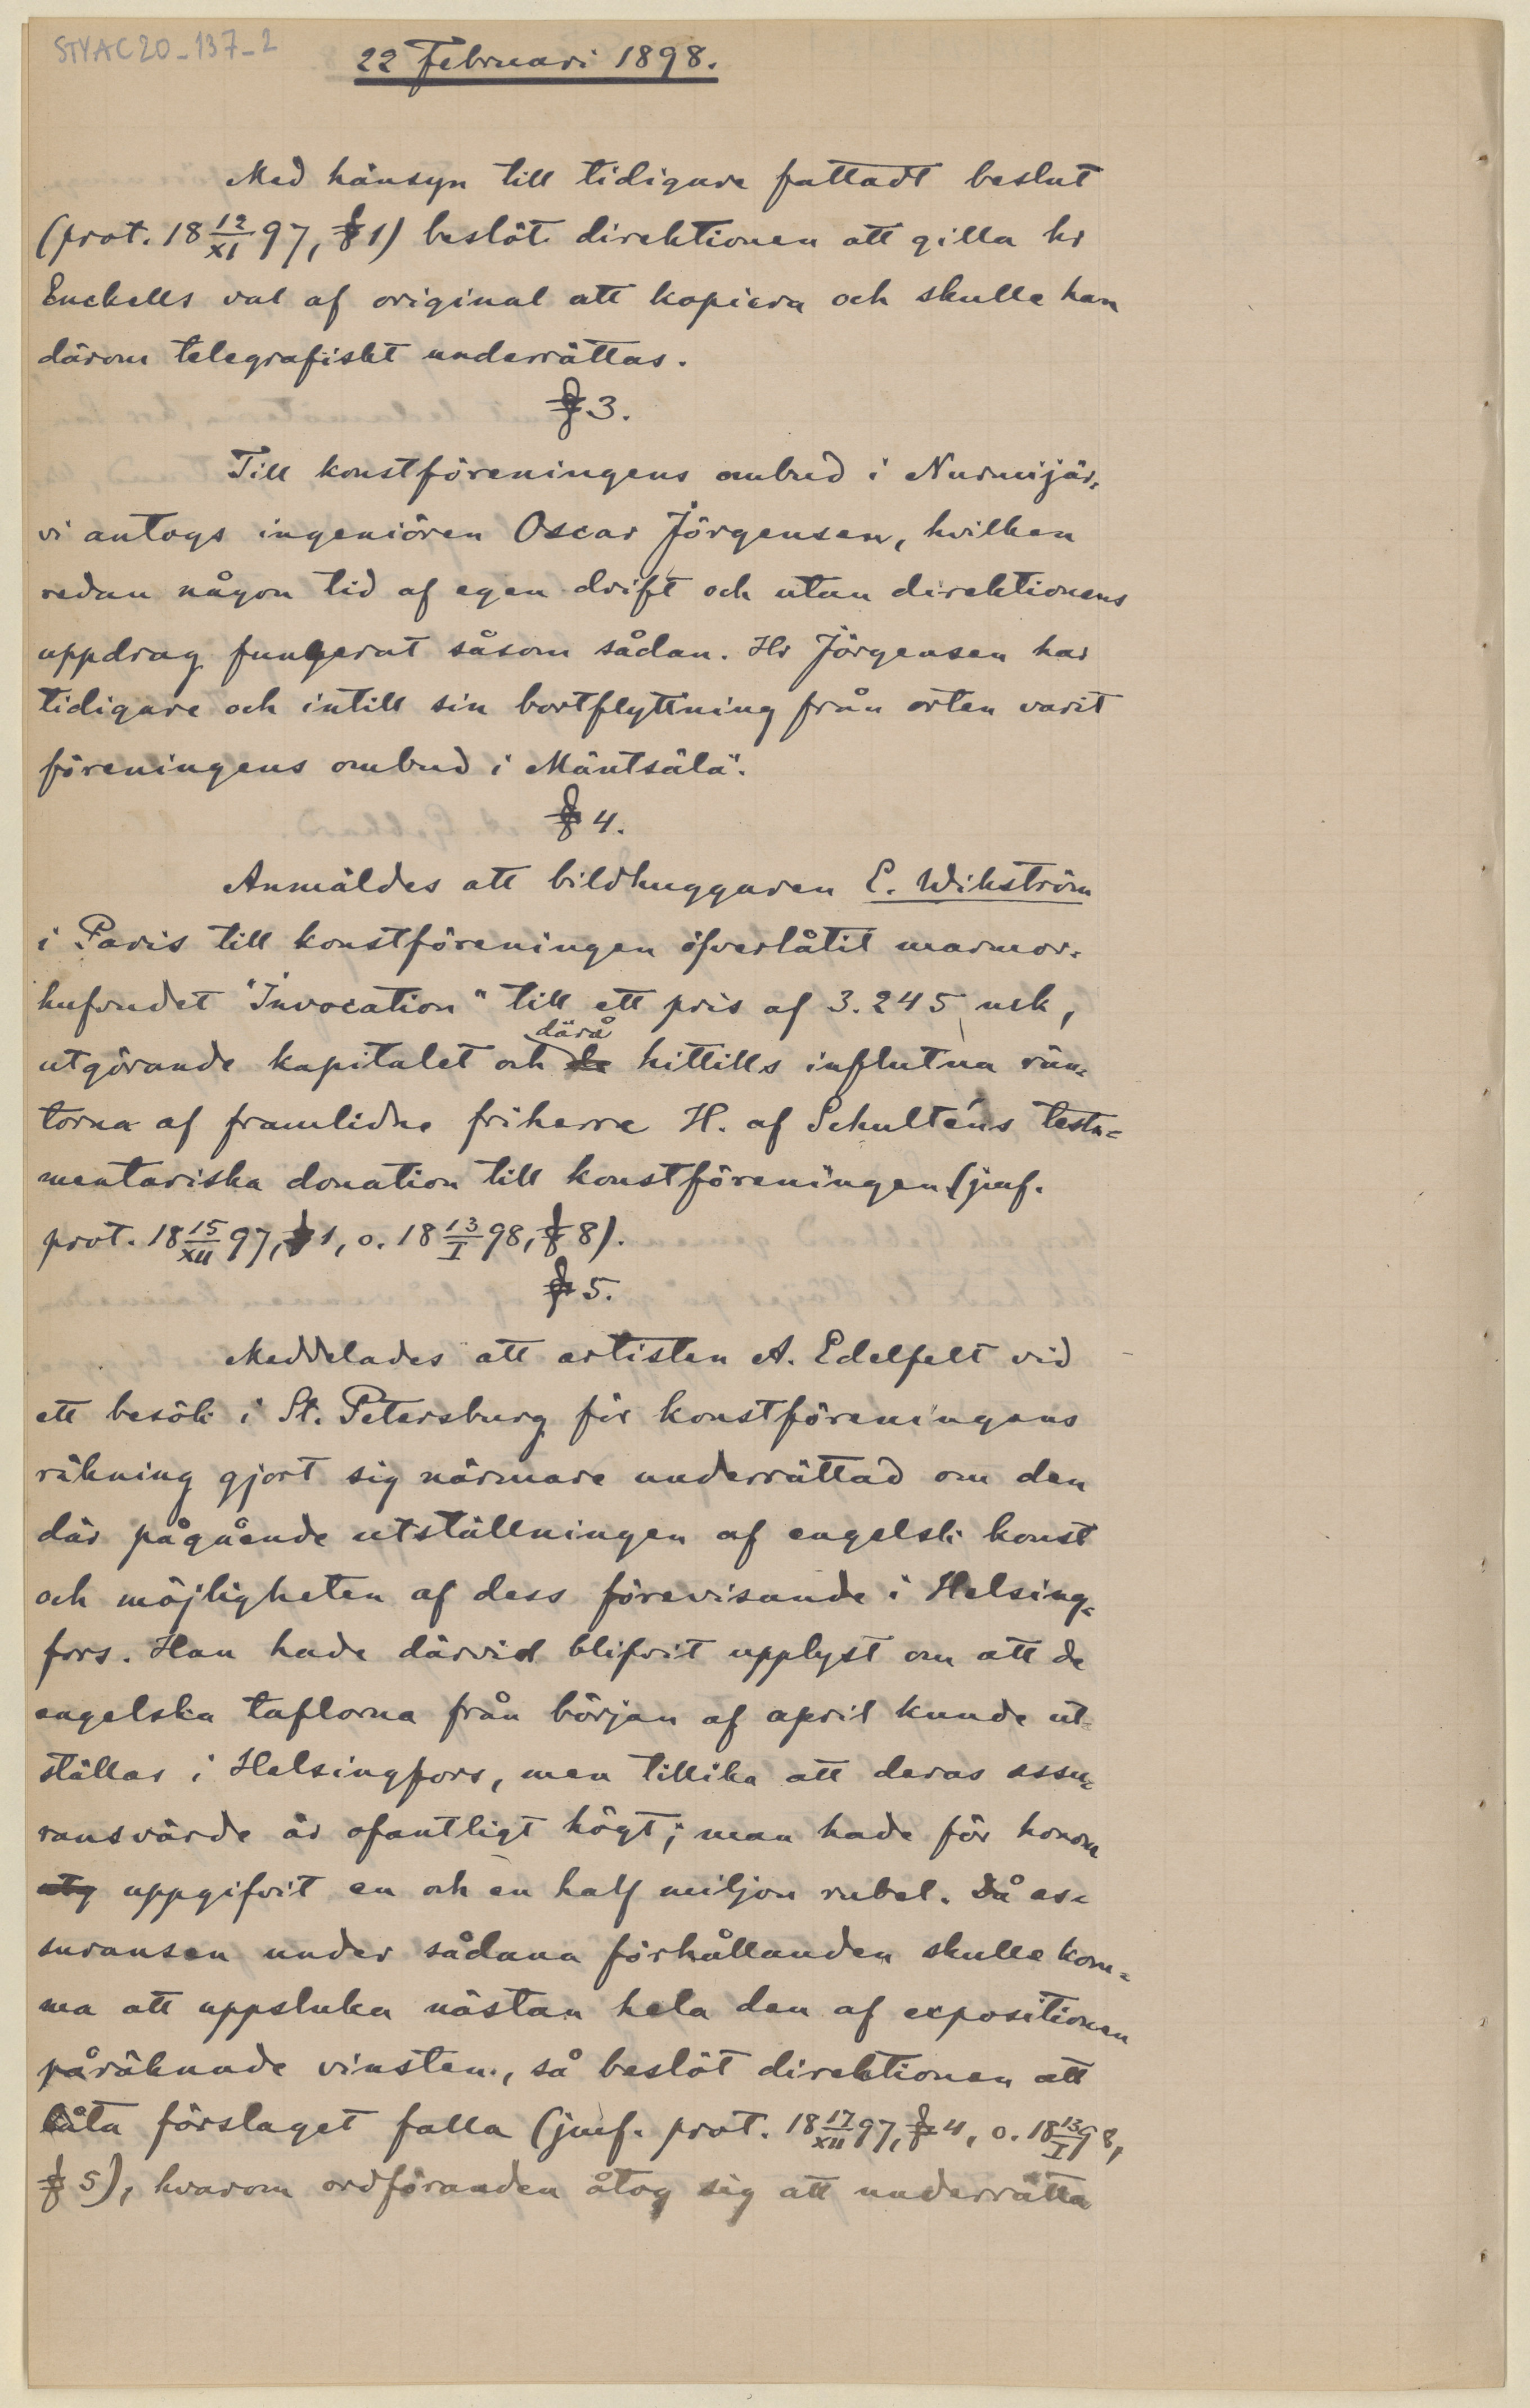 STYAC20-137-2
22 Februari 1898.
Med hänsyn till tidigare fattadt beslut
(prot. 18 12/XI 97, § 1) beslöt direktionen att gilla hr
Enckells val af original att kopiera och skulle han
därom telegrafiskt underrättas.
§ 3.
Till konstföreningens ombud i Nurmijär-
vi antogs ingeniören Oscar Jörgensen, hvilken
redan någon tid af egen drift och utan direktionens
uppdrag fungerat såsom sådan. Hr Jörgensen har
tidigare och intill sin bortflyttning från orten varit
föreningens ombud i Mäntsälä.
§ 4.
Anmäldes att bildhuggaren E. Wikström
i Paris till konstföreningen öfverlåtit marmor-
hufvudet "Invocation" till ett pris af 3.245 mk,
därå
utgörande kapitalet och de hittills influtna rän-
torna af framlidne friherre H. af Schulténs testa-
mentariska donation till konstföreningen (jmf.
prot. 18 15/XII 97, § 1, o. 18 13/I 98, § 8).
§ 5.
Meddelades att artisten A. Edelfelt vid
ett besök i St. Petersburg för konstföreningens
räkning gjort sig närmare underrättad om den
där pågående utställningen af engelsk konst
och möjligheten af dess förevisande i Helsing-
fors. Han hade därvid blifvit upplyst om att de
engelska taflorna från början af april kunde ut-
ställas i Helsingfors, men tillika att deras assu-
ransvärde är ofantligt högt; man hade för honom
utg uppgifvit en och en half miljon rubel. Då as-
suransen under sådana förhållanden skulle kom-
ma att uppsluka nästan hela den af expositionen
påräknade vinsten, så beslöt direktionen att
låta förslaget falla (jmf. prot. 18 17/XII 97, § 4, o. 18 13/I 98,
§ 5), hvarom ordföranden åtog sig att underrätta